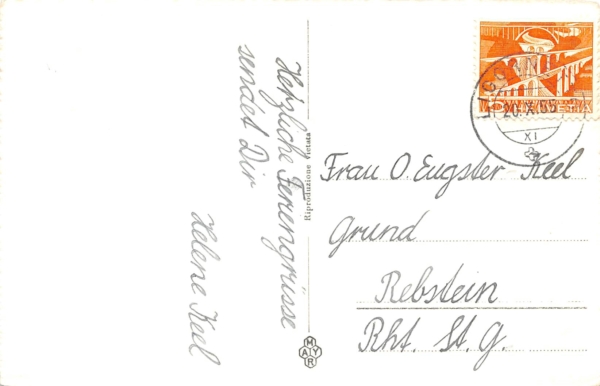 Herzliche Feriengrüsse
sendet Dir
Helene Keel
Riproduzione vietata
MAYR
Frau O. Eugster Keel
Grund
Rebstein
Rht. St. G.
20.X.55
XI